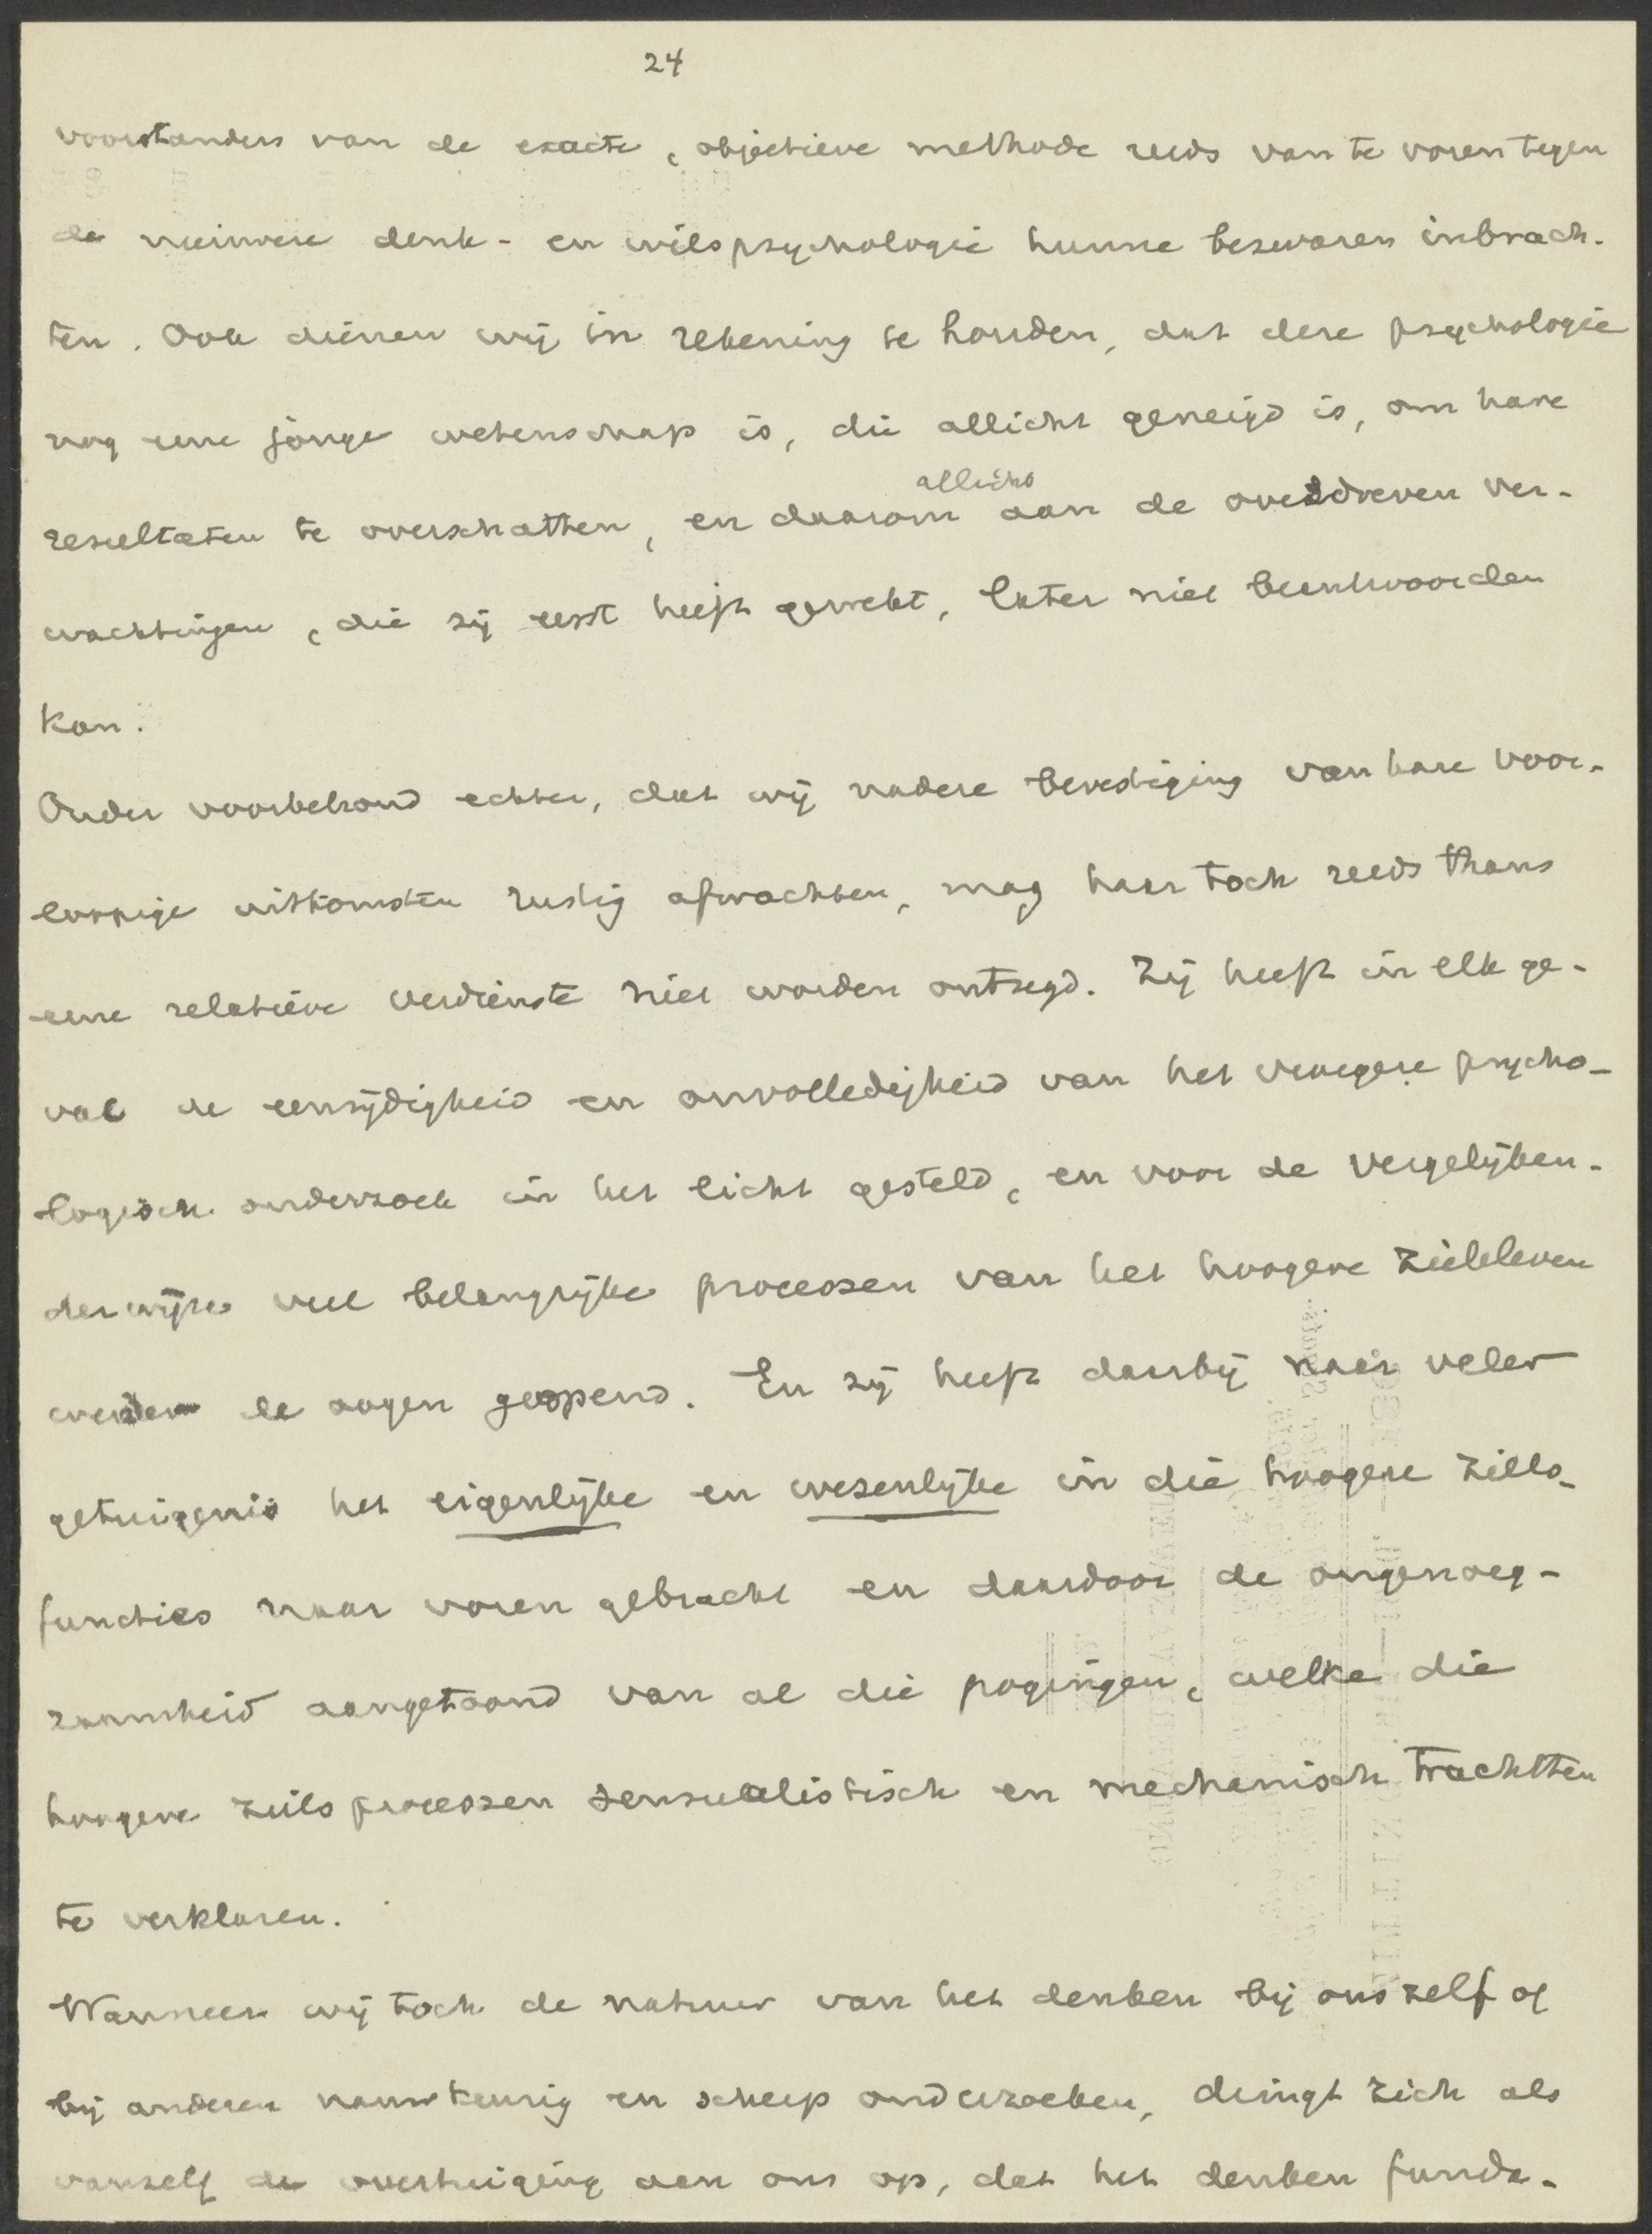 24
voorstanders van de exacte, objectieve methode reeds van te voren tegen
de nieuwere denk- en wilspsychologie hunne bezwaren inbrach-
ten. Ook dienen wij in rekening te houden, dat deze psychologie
nog eene jonge wetenschap is, die allicht geneigd is, om hare
allicht
resultaten te overschatten, en daarom aan de overdreven ver-
wachtingen, die zij eerst heeft gewekt, later niet beantwoorden
kan.
Onder voorbehoud echter, dat wij nadere bevestiging van hare voor-
loopige uitkomsten rustig afwachten, mag haar toch reeds thans
eene relatieve verdienste niet worden ontzegd. Zij heeft in elk ge-
val de eenzijdigheid en onvolledigheid van het vroegere psycho-
logisch onderzoek in het licht gesteld, en voor de vergelijken-
derwijze veel belangrijke processen van het hoogere zieleleven
weder de oogen geopend. En zij heeft daarbij naar veler
getuigenis het eigenlijke en wezenlijke in die hoogere ziels-
functies naar voren gebracht en daardoor de ongenoeg-
zaamheid aangetoond van al die pogingen, welke die
hoogere zielsprocessen sensualistisch en mechanisch trachtten
te verklaren.
Wanneer wij toch de natuur van het denken bij ons zelf of
bij anderen nauwkeurig en scherp onderzoeken, dringt zich als
vanzelf de overtuiging aan ons op, dat het denken funda-